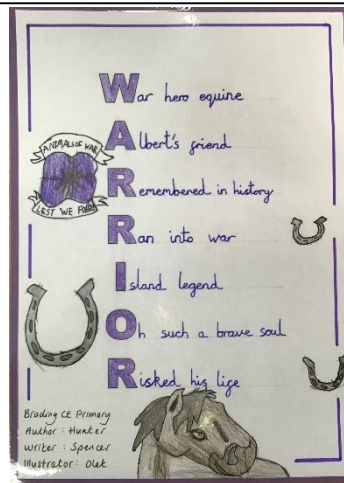 War hero equine
Albert's friend
Remembered in history
Ran into war
Island legend
Oh such a brave soul
Risked his life
ANIMALS OF WAR
LEST WE
Brading CE Primary
Author : Hunter
writer : Spencer
Illustrator : Olek